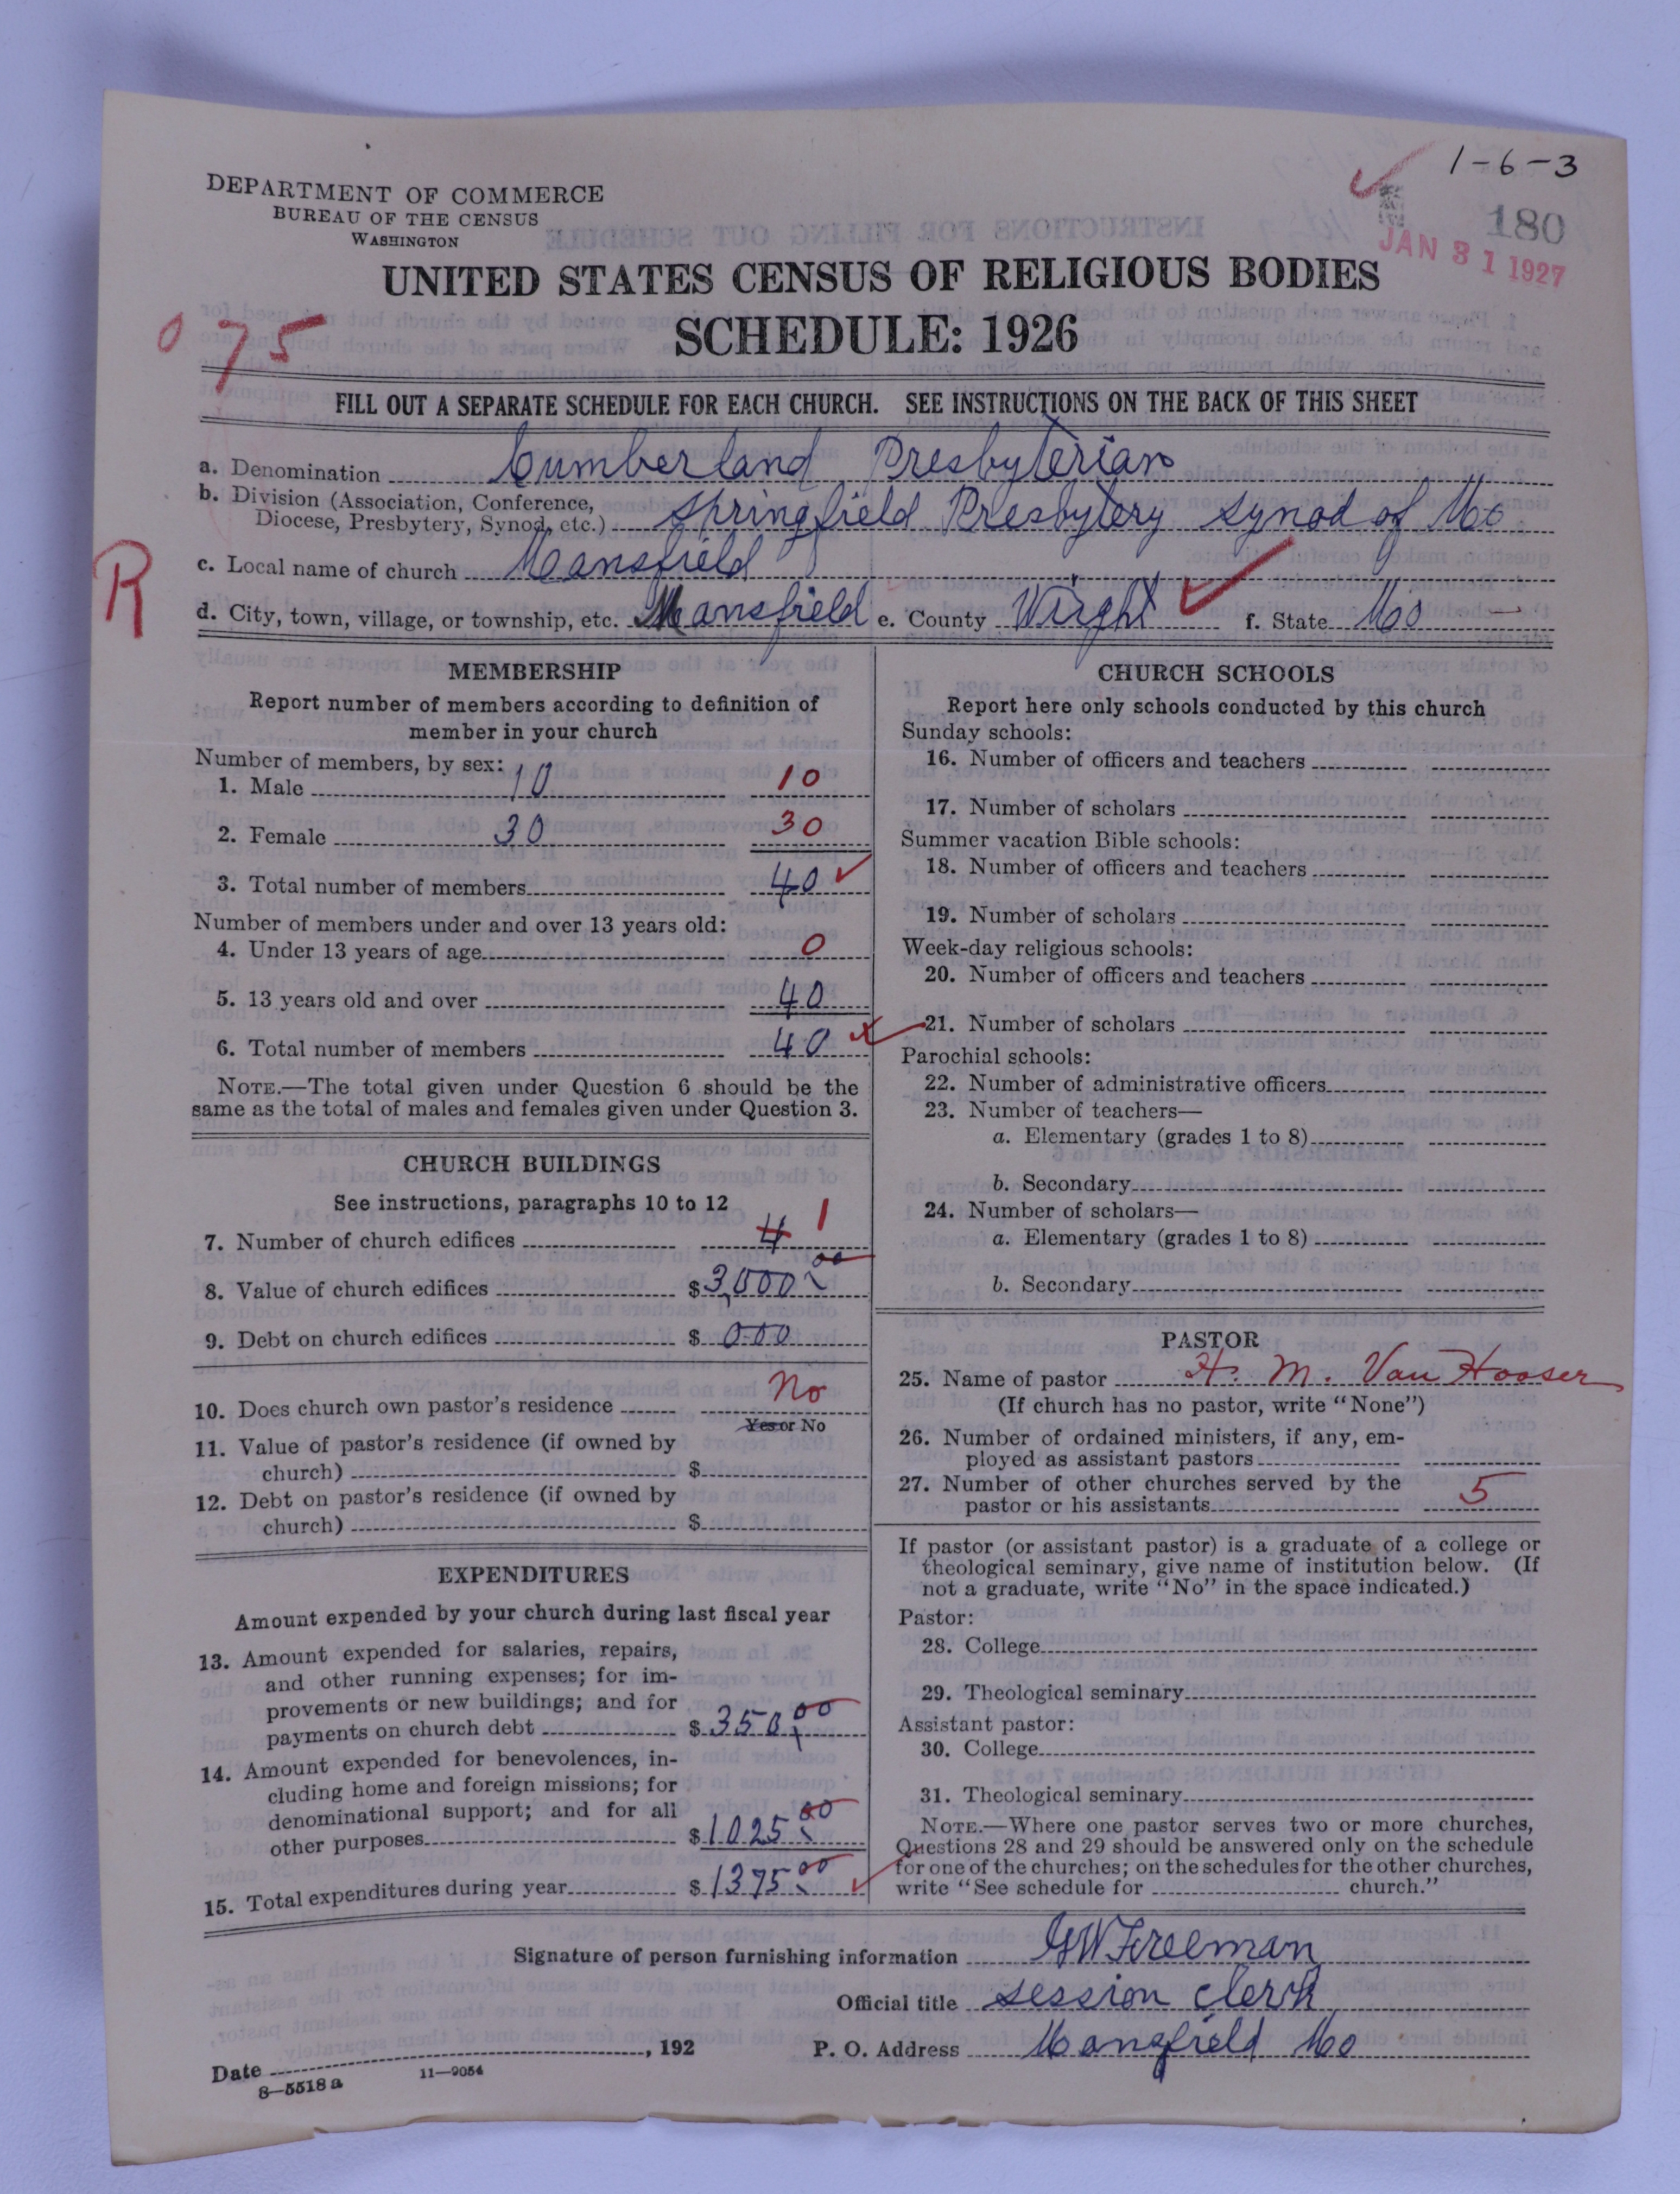 1-6-3
DEPARTMENT OF COMMERCE
BUREAU OF THE CENSUS
WASHINGTON
180
JAN 31 1927
UNITED STATES CENSUS OF RELIGIOUS BODIES
SCHEDULE: 1926
075
FILL OUT A SEPARATE SCHEDULE FOR EACH CHURCH. SEE INSTRUCTIONS ON THE BACK OF THIS SHEET
a. Denomination Cumberland Presbyterian
b. Division (Association, Conference,
Diocese, Presbytery, Synod, etc.) Springfield Presbytery Synod of Mo
R
c. Local name of church Mansfield
d. City, town, village, or township, etc. Mansfield e. County Wright f. State Mo
MEMBERSHIP
Report number of members according to definition of
member in your church
Number of members, by sex:
1. Male 10 10
2. Female 30 30
3. Total number of members 40
Number of members under and over 13 years old:
4. Under 13 years of age 0
5. 13 years old and over 40
6. Total number of members 40
NOTE.—The total given under Question 6 should be the
same as the total of males and females given under Question 3.
CHURCH BUILDINGS
See instructions, paragraphs 10 to 12
7. Number of church edifices 4 1
8. Value of church edifices $ 3,000 00
9. Debt on church edifices $ 000
10. Does church own pastor's residence No
Yes or No
11. Value of pastor's residence (if owned by
church) $
12. Debt on pastor's residence (if owned by
church) $
EXPENDITURES
Amount expended by your church during last fiscal year
13. Amount expended for salaries, repairs,
and other running expenses; for im-
provements or new buildings; and for
payments on church debt $ 350 00
14. Amount expended for benevolences, in-
cluding home and foreign missions; for
denominational support; and for all
other purposes $ 1025 00
15. Total expenditures during year $ 1375 00
CHURCH SCHOOLS
Report here only schools conducted by this church
Sunday schools:
16. Number of officers and teachers
17. Number of scholars
Summer vacation Bible schools:
18. Number of officers and teachers
19. Number of scholars
Week-day religious schools:
20. Number of officers and teachers
21. Number of scholars
Parochial schools:
22. Number of administrative officers
23. Number of teachers—
a. Elementary (grades 1 to 8)
b. Secondary
24. Number of scholars—
a. Elementary (grades 1 to 8)
b. Secondary
PASTOR
25. Name of pastor H. M. Van Hooser
(If church has no pastor, write "None")
26. Number of ordained ministers, if any, em-
ployed as assistant pastors
27. Number of other churches served by the
pastor or his assistants 5
If pastor (or assistant pastor) is a graduate of a college or
theological seminary, give name of institution below. (If
not a graduate, write "No" in the space indicated.)
Pastor:
28. College
29. Theological seminary
Assistant pastor:
30. College
31. Theological seminary
NOTE.—Where one pastor serves two or more churches,
Questions 28 and 29 should be answered only on the schedule
for one of the churches; on the schedules for the other churches,
write "See schedule for church."
Signature of person furnishing information G W Freeman
Official title Session Clerk
Date , 192 P. O. Address Mansfield Mo
8—5518a 11—9054